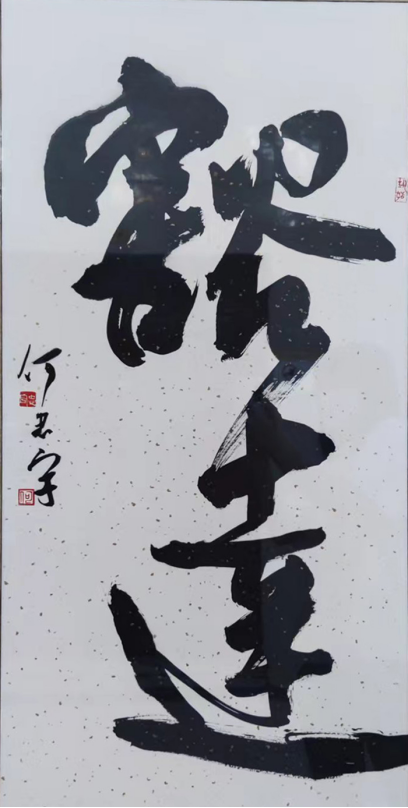 豁達
何君宇